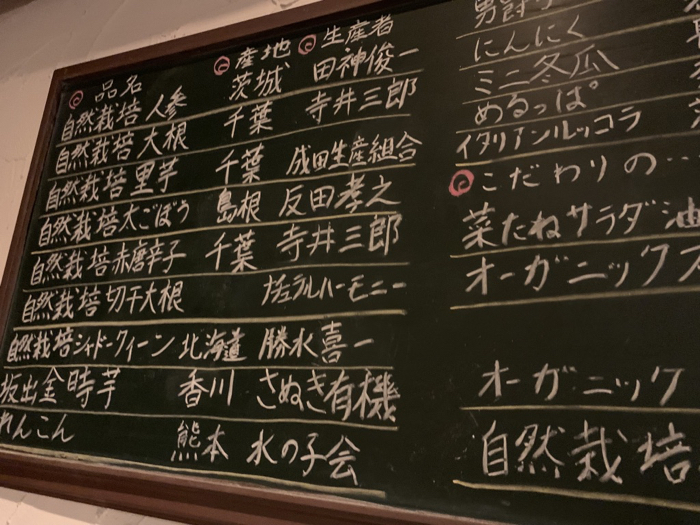 品名 産地 生産者
自然栽培人参 茨城 田神俊一
自然栽培大根 千葉 寺井三郎
自然栽培里芋 千葉 成田生産組合
自然栽培太ごぼう 島根 反田孝之
自然栽培赤唐辛子 千葉 寺井三郎
自然栽培切干大根 ナチュラルハーモニー
自然栽培シャドークィーン 北海道 勝水喜一
坂出金時芋 香川 さぬき有機
れんこん 熊本 水の子会
男爵
にんにく
ミニ冬瓜
めるっぱ
イタリアンルッコラ
こだわりの…
菜たねサラダ油
オーガニックス
オーガニック
自然栽培